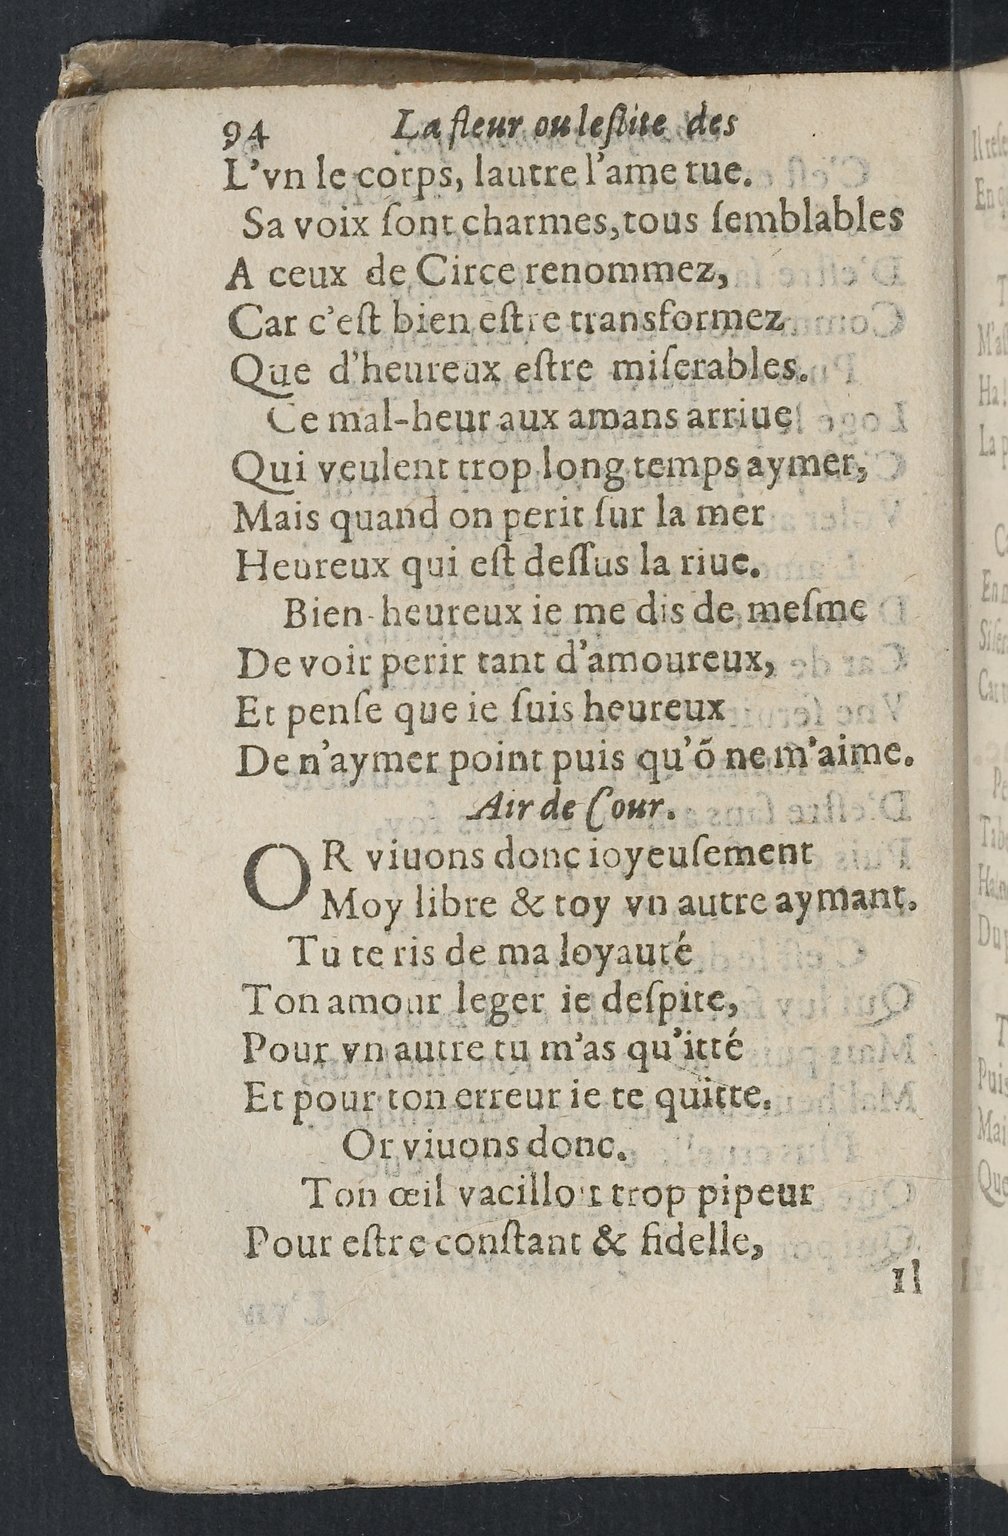 94 La fleur ou leslite des
L'vn le corps, lautre l'ame tue.
Sa voix ſont charmes, tous ſemblables
A ceux de Circe renommez,
Car c'eſt bien eſtre transformez
Que d'heureux eſtre miſerables.
Ce mal-heur aux amans arriue
Qui veulent trop long temps aymer,
Mais quand on perit ſur la mer
Heureux qui eſt deſſus la riue.
Bien-heureux ie me dis de meſme
De voir perir tant d'amoureux,
Et penſe que ie ſuis heureux
De n'aymer point puis qu'õ ne m'aime.
Air de Cour.
OR viuons donc ioyeuſement
Moy libre & toy vn autre aymant.
Tu te ris de ma loyauté
Ton amour leger ie deſpite,
Pour vn autre tu m'as qu'itté
Et pour ton erreur ie te quitte.
Or viuons donc.
Ton œil vacilloit trop pipeur
Pour eſtre conſtant & fidelle,
Il